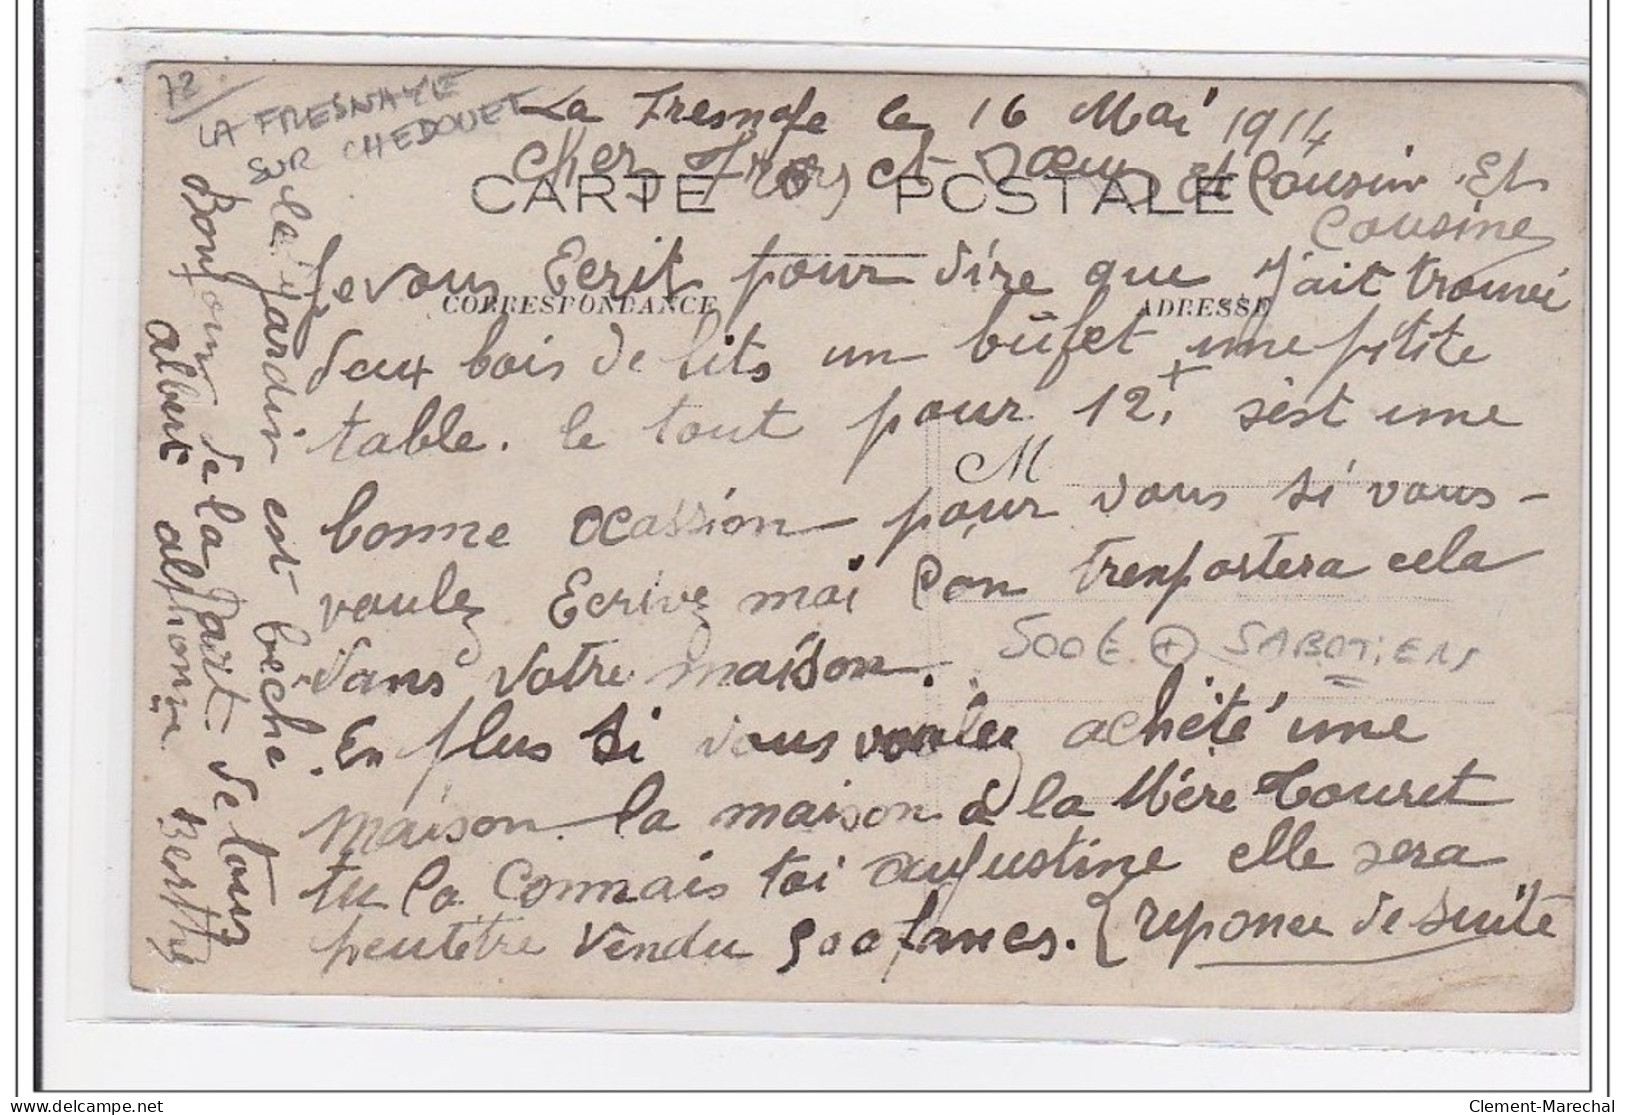 72
LA FRESNAYE
SUR CHEDOUET
La Fresnaye le 16 Mai 1914
Cher Frère et Sœur et Cousin Et
Cousine
CARTE POSTALE
CORRESPONDANCE
ADRESSE
Je vous Ecrit pour dire que J'ait trouvé
deux bois de lits un bûfet une petite
table. le tout pour 12f sest une
M
bonne ocassion pour vous si vous-
voulez Ecrivez moi l'on trenportera cela
500€ + SABOTIERS
dans votre maison.
En plus si vous voulez acheté une
maison la maison à la Mère Touret
tu la Connais toi augustine elle sera
peutetre vendu 500 francs. { reponce de suite
le jardin est bèché
Bonjour de la part de tous
albert alphonsine Berthe
Clement-Marechal
www.delcampe.net